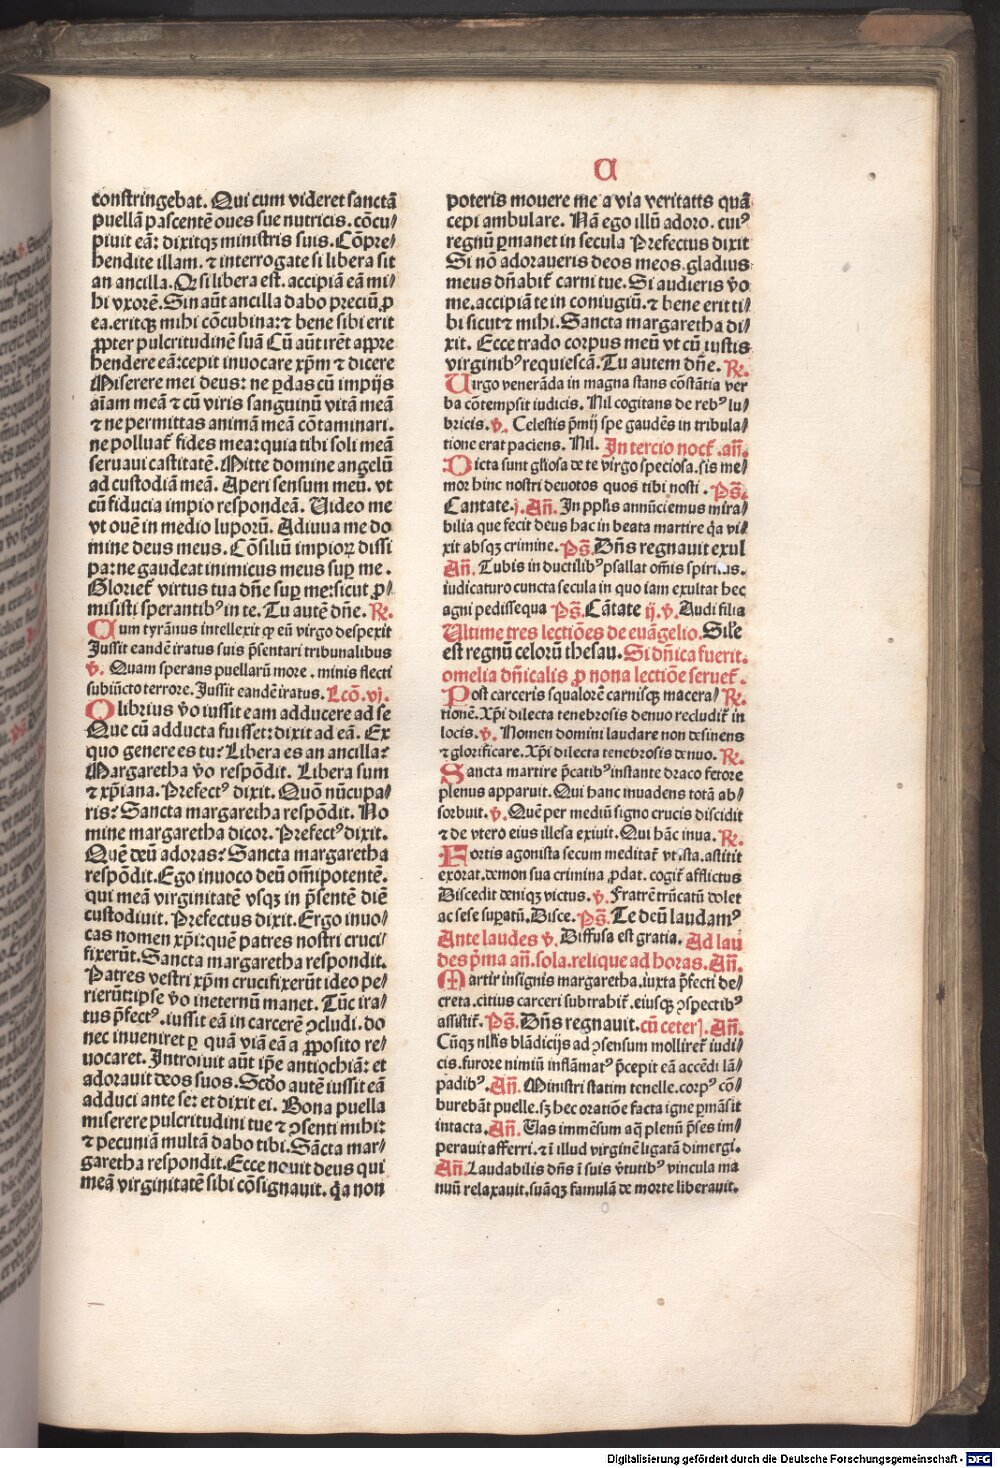 C
constringebat. Qui cum videret sanctā
puellā pascentē oues sue nutricis. cōcu/
piuit eā: dixitqꝫ ministris suis. Cōpre/
hendite illam. ⁊ interrogate si libera sit
an ancilla. Qꝛ si libera est. accipiā eā mi/
hi vxorē. Sin aūt ancilla dabo preciū ꝓ
ea. eritqꝫ mihi cōcubina: ⁊ bene sibi erit
ꝓpter pulcritudinē suā Cū aūt irēt appre
hendere eā: cepit inuocare xp̄m ⁊ dicere
Miserere mei deus: ne ꝑdas cū impijs
aīam meā ⁊ cū viris sanguinū vitā meā
⁊ ne permittas animā meā cōtaminari.
ne polluat᷑ fides mea: quia tibi soli meā
seruaui castitatē. Mitte domine angelū
ad custodiā meā. Aperi sensum meū. vt
cū fiducia impio respondeā. Uideo me
vt ouē in medio luporū. Adiuua me do
mine deus meus. Cōsiliū impioꝝ dissi
pa: ne gaudeat inimicus meus suꝑ me.
Gloriet᷑ virtus tua dn̄e suꝑ me: sicut ꝓ/
misisti sperantibꝰ in te. Tu autē dn̄e. ℟.
Cum tyrānus intellexit ꝙ eū virgo despexit
Jussit eandē iratus suis p̄sentari tribunalibus
℣. Quam sperans puellarū more. minis flecti
subiūcto terrore. Jussit eandē iratus. Lcō. vj.
Olibrius v̄o iussit eam adducere ad se
Que cū adducta fuisset: dixit ad eā. Ex
quo genere es tu? Libera es an ancilla?
Margaretha v̄o respōdit. Libera sum
⁊ xp̄iana. Prefectꝰ dixit. Quō nūcupa/
ris? Sancta margaretha respōdit. No
mine margaretha dicor. Prefectꝰ dixit.
Quē deū adoras? Sancta margaretha
respōdit. Ego inuoco deū om̄ipotentē.
qui meā virginitatē vsqꝫ in p̄sentē diē
custodiuit. Prefectus dixit. Ergo inuo/
cas nomen xp̄i: quē patres nostri cruci/
fixerūt. Sancta margaretha respondit.
Patres vestri xp̄m crucifixerūt ideo pe/
rierūt: ipse v̄o in eternū manet. Tūc ira/
tus p̄fectꝰ. iussit eā in carcerē ꝯcludi. do
nec inueniret ꝑ quā viā eā a ꝓposito re/
uocaret. Introiuit aūt ip̄e antiochiā: et
adorauit deos suos. Scd̄o autē iussit eā
adduci ante se: et dixit ei. Bona puella
miserere pulcritudini tue ⁊ ꝯsenti mihi:
⁊ pecuniā multā dabo tibi. Sācta mar/
garetha respondit. Ecce nouit deus qui
meā virginitatē sibi cōsignauit. q̄a non
poteris mouere me a via veritatis quā
cepi ambulare. Nā ego illū adoro. cuiꝰ
regnū ꝑmanet in secula Prefectus dixit
Si nō adoraueris deos meos. gladius
meus dn̄abit᷑ carni tue. Si audieris v̄o
me. accipiā te in coniugiū. ⁊ bene erit ti/
bi sicut ⁊ mihi. Sancta margaretha di/
xit. Ecce trado corpus meū vt cū iustis
virginibꝰ requiescā. Tu autem dn̄e. ℟.
Uirgo venerāda in magna stans cōstātia ver
ba cōtempsit iudicis. Nil cogitans de rebꝰ lu/
bricis. ℣. Celestis p̄mij spe gaudēs in tribula/
tione erat paciens. Nil. In tercio noct᷑. an̄.
Dicta sunt gl̄iosa de te virgo speciosa. sis me/
mor hinc nostri deuotos quos tibi nosti. Ps̄.
Cantate. j. An̄. In pp̄lis annūciemus mira/
bilia que fecit deus hac in beata martire q̄a vi/
xit absqꝫ crimine. Ps̄. Dn̄s regnauit exul
An̄. Tubis in ductilibꝰ psallat om̄is spiritus.
iudicaturo cuncta secula in quo iam exultat hec
agni pedissequa Ps̄. Cātate ij. ℣. Audi filia
Ultime tres lectiōes de euāgelio. Sil̄e
est regnū celorū thesau. Si dn̄ica fuerit.
omelia dn̄icalis ꝓ nona lectiōe seruet᷑.
Post carceris squalorē carnisqꝫ macera/ ℟.
tionē. Xp̄i dilecta tenebrosis denuo recludit᷑ in
locis. ℣. Nomen domini laudare non desinens
⁊ glorificare. Xp̄i dilecta tenebrosis denuo. ℟.
Sancta martire p̄catibꝰ instante draco fetore
plenus apparuit. Qui hanc inuadens totā ab/
sorbuit. ℣. Quē per mediū signo crucis discidit
⁊ de vtero eius illesa exiuit. Qui hāc inua. ℟.
Fortis agonista secum meditat᷑ vt ista. astitit
exorat. demon sua crimina ꝓdat. cogit᷑ afflictus
Discedit deniqꝫ victus. ℣. Fratrē trūcatū dolet
ac sese suꝑatū. Disce. Ps̄. Te deū laudamꝰ
Ante laudes ℣. Diffusa est gratia. Ad lau
des p̄ma an̄. sola. relique ad horas. An̄.
Martir insignis margaretha. iuxta p̄fecti de/
creta. citius carceri subtrahit᷑. eiusqꝫ ꝯspectibꝰ
assistit᷑. Ps̄. Dn̄s regnauit. cū ceteꝝ. An̄.
Cūqꝫ nll̄is blādicijs ad ꝯsensum molliret᷑ iudi/
cis. furore nimiū inflāmatꝰ p̄cepit eā accēdi lā/
padibꝰ. An̄. Ministri statim tenelle. corpꝰ cō/
burebāt puelle. sꝫ hec oratiōe facta igne ꝑmāsit
intacta. An̄. Uas immēsum aq̄ plenū p̄ses im/
perauit afferri. ⁊ ī illud virginē ligatā dimergi.
An̄. Laudabilis dn̄s ī suis v̄tutibꝰ vincula ma
nuū relaxauit. suāqꝫ famulā de morte liberauit.
Digitalisierung gefördert durch die Deutsche Forschungsgemeinschaft - DFG